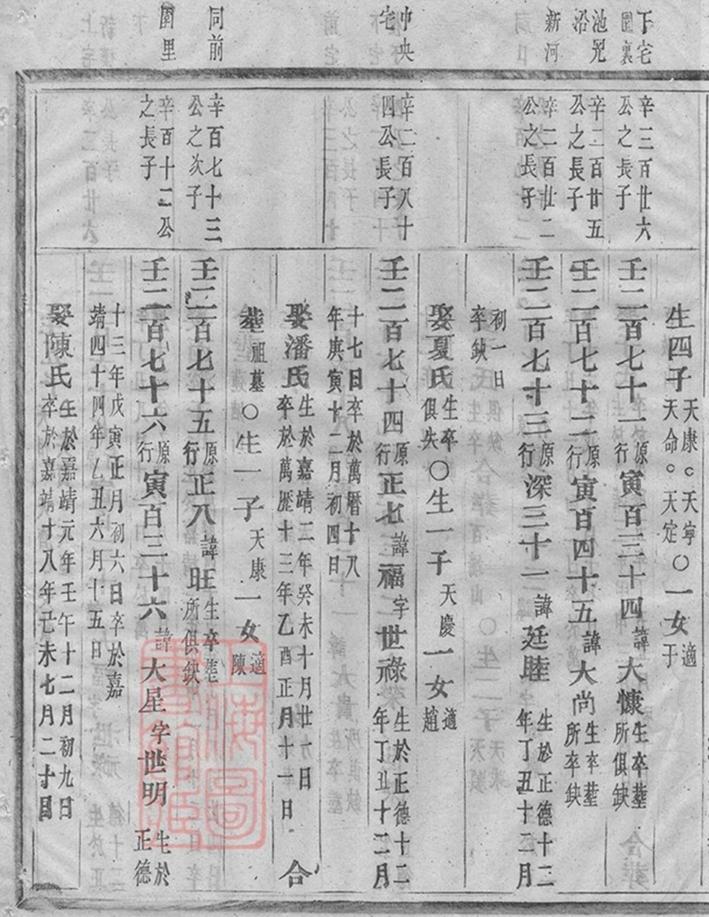 生四子 天康○天寧 天命○天定 ○一女 適于
下宅園裏
辛三百廿六公之長子
壬二百七十一 原行寅百三十四 諱大慷 生卒塟所俱缺
池兒沿
辛二百廿五公之長子
壬二百七十二 原行寅百四十五 諱大尚 生卒塟所卒缺
新河
辛二百廿二公之長子
壬二百七十三 原行深三十一 諱廷睦 生於正德十二年丁丑十二月
初一日卒缺
娶夏氏 生卒俱失○生一子 天慶 一女 適趙
中央宅
辛二百八十四公長子
壬二百七十四 原行正七 諱福二字世祿 生於正德十二年丁丑十二月
十七日卒於萬曆十八年庚寅十二月初四日
娶潘氏 生於嘉靖二年癸未十月廿六日卒於萬歷十三年乙酉正月十一日 合
塟祖墓○生一子 天康 一女 適陳
同前
辛百七十三公之次子
壬二百七十五 原行正八 諱旺 生卒塟所俱缺
園里
辛百十二公之長子
壬二百七十六 原行寅百三十六 諱大星字世明 生於正德
十三年戊寅正月初六日卒於嘉靖四十四年乙丑六月十五日
娶陳氏 生於嘉靖元年壬午十二月初九日卒於嘉靖十八年己未七月二十日